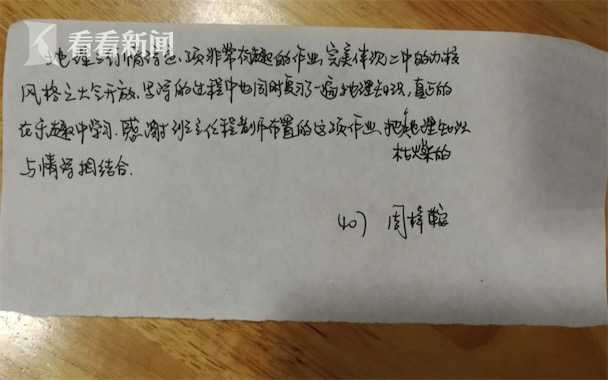 看看新闻
地理写情诗是一项非常有趣的作业,完美体现二中的办校
风格之大气开放.书写的过程中也同时复习了一遍地理知识,真正的
在乐趣中学习.感谢班主任程老师布置的这项作业、把地理知识
枯燥的
与情诗相结合.
40) 周梓